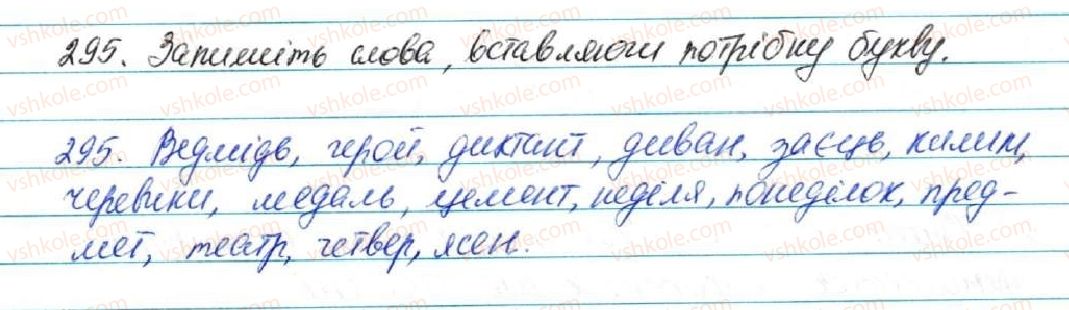 295. Запишіть слова, вставляючи потрібну букву.
295. Ведмідь, герой, диктант, диван, заєць, килим,
черевики, медаль, цемент, неділя, понеділок, пред-
мет, театр, четвер, ясен.